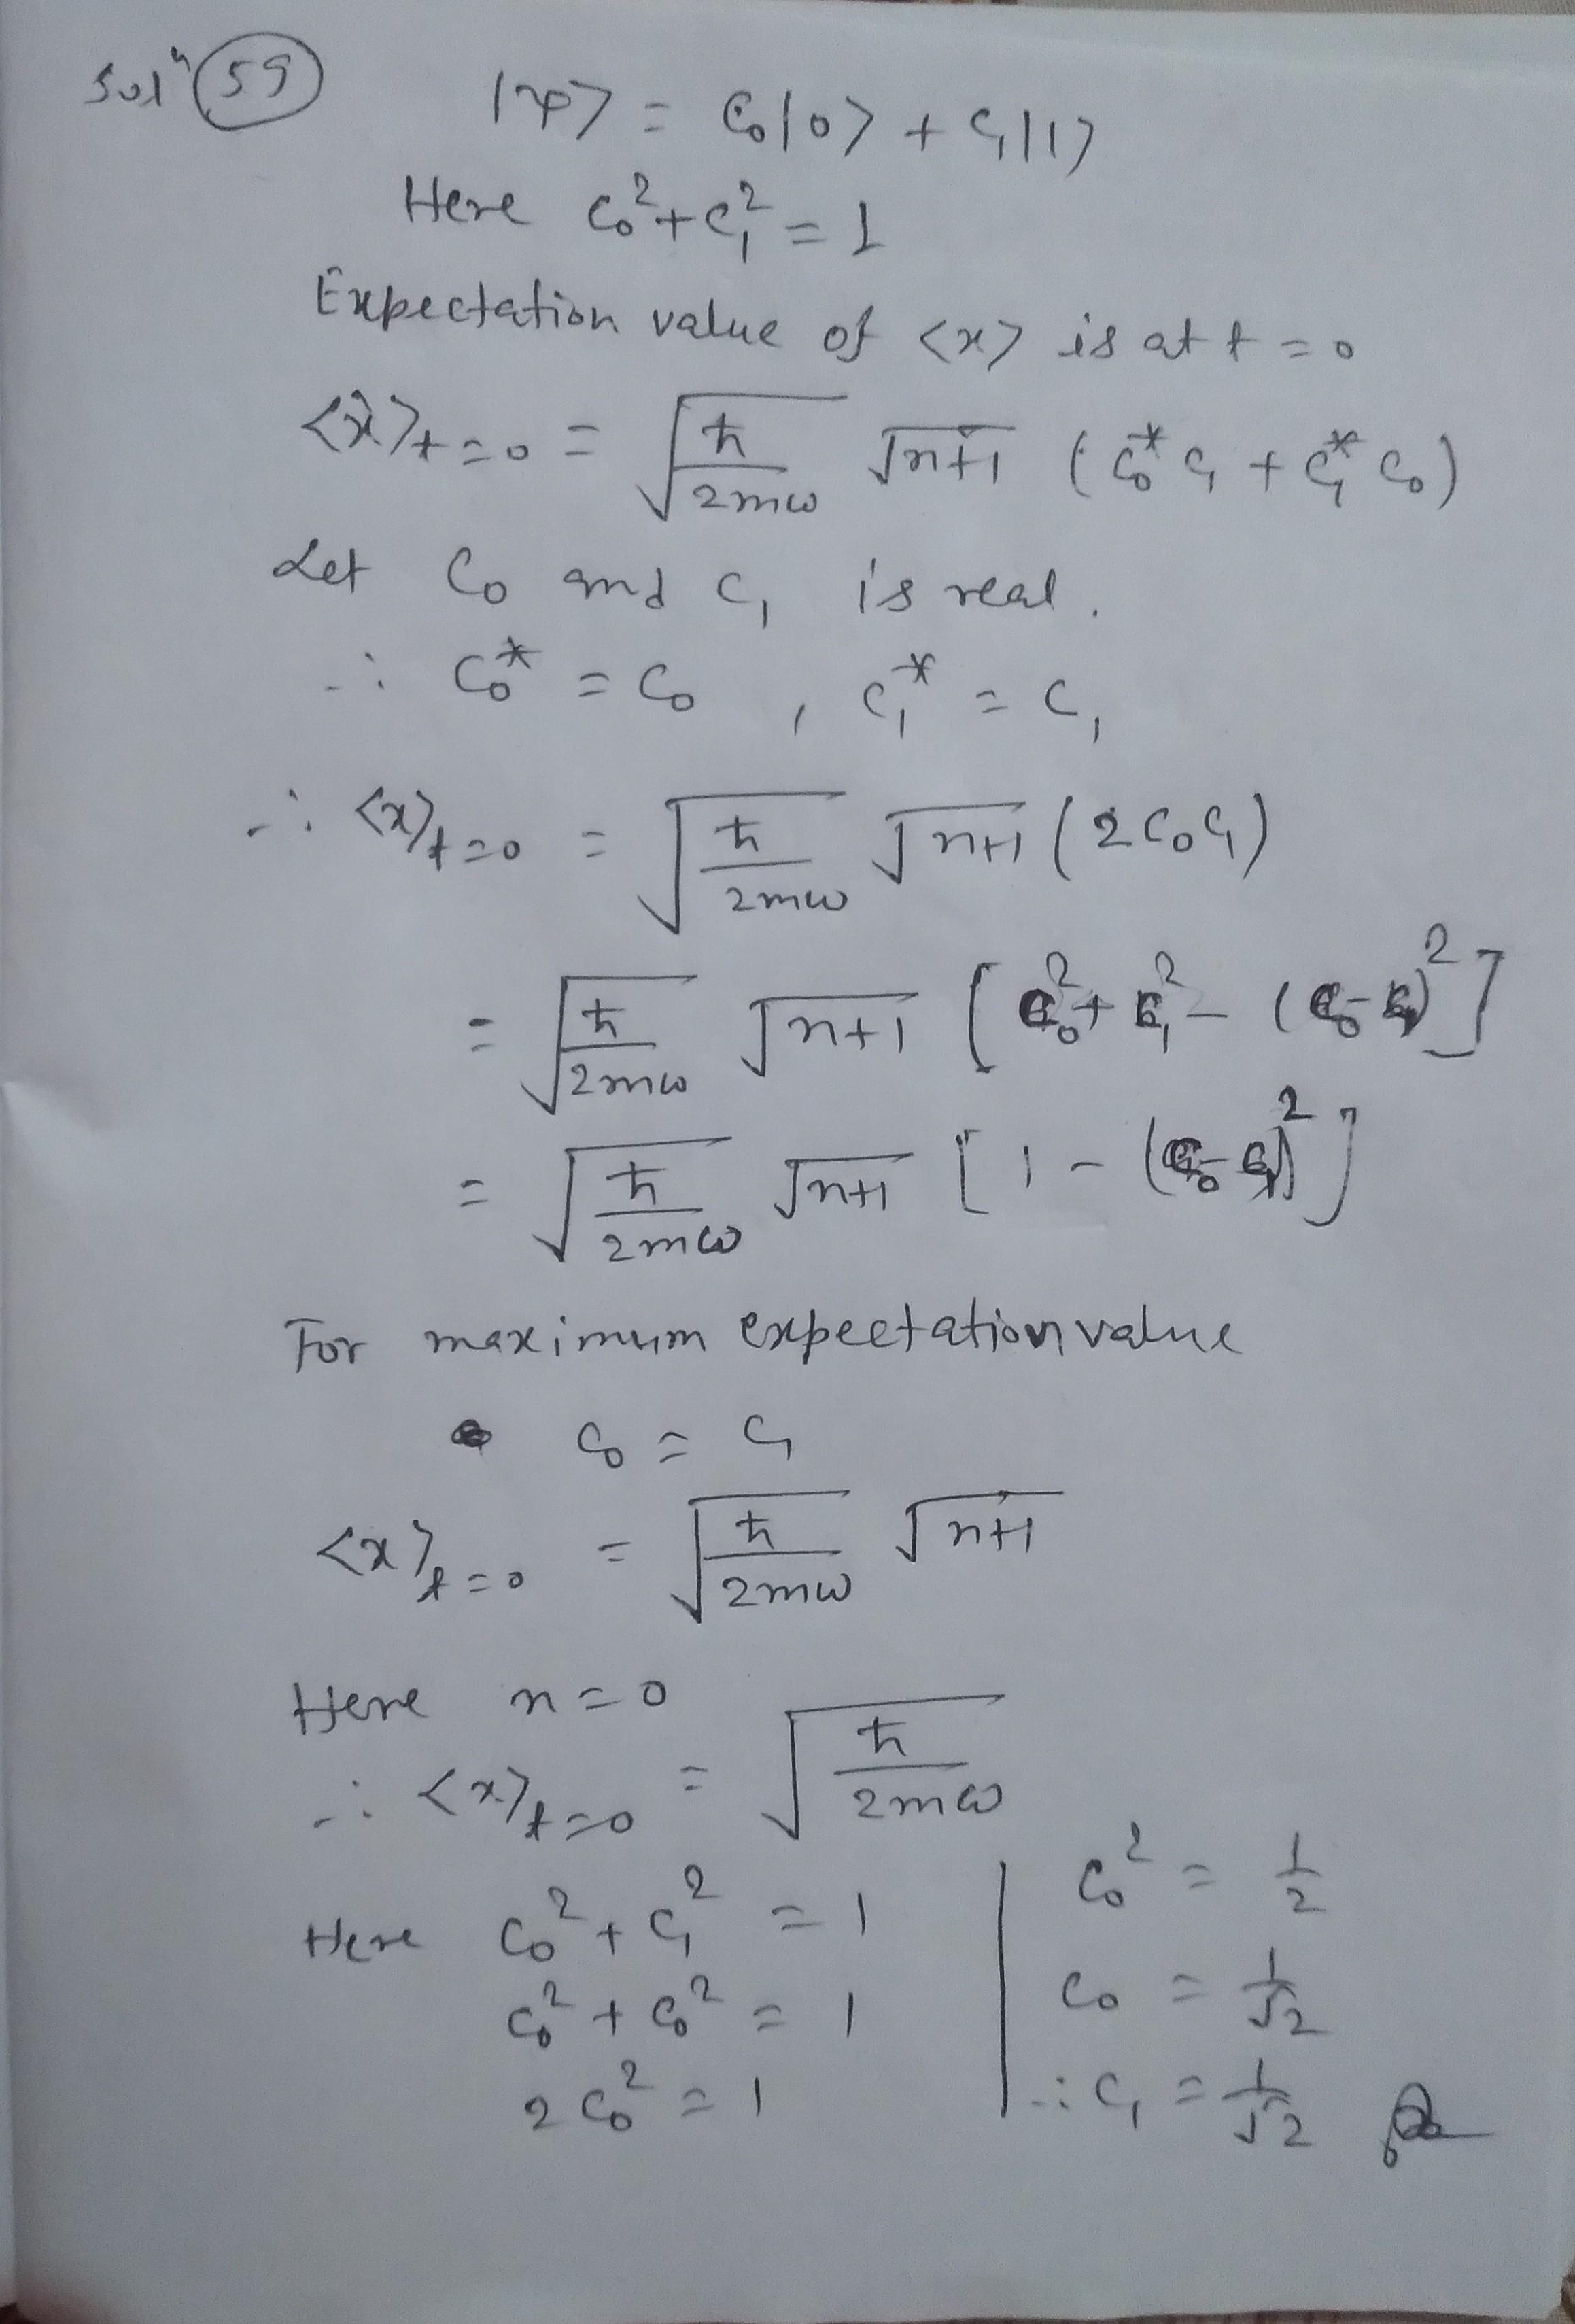 Solⁿ (59) |ψ> = C₀|0> + C₁|1>
Here C₀² + C₁² = 1
Expectation value of <x> is at t = 0
<x̂>ₜ₌₀ = √(ħ/2mω) √(n+1) (C₀* C₁ + C₁* C₀)
Let C₀ and C₁ is real.
∴ C₀* = C₀ , C₁* = C₁
∴ <x>ₜ₌₀ = √(ħ/2mω) √(n+1) (2C₀C₁)
= √(ħ/2mω) √(n+1) [C₀² + C₁² - (C₀-C₁)²]
= √(ħ/2mω) √(n+1) [1 - (C₀-C₁)²]
For maximum expectation value
C₀ = C₁
<x>ₜ₌₀ = √(ħ/2mω) √(n+1)
Here n = 0
∴ <x>ₜ₌₀ = √(ħ/2mω)
Here C₀² + C₁² = 1
C₀² + C₀² = 1
2C₀² = 1
C₀² = 1/2
C₀ = 1/√2
∴ C₁ = 1/√2